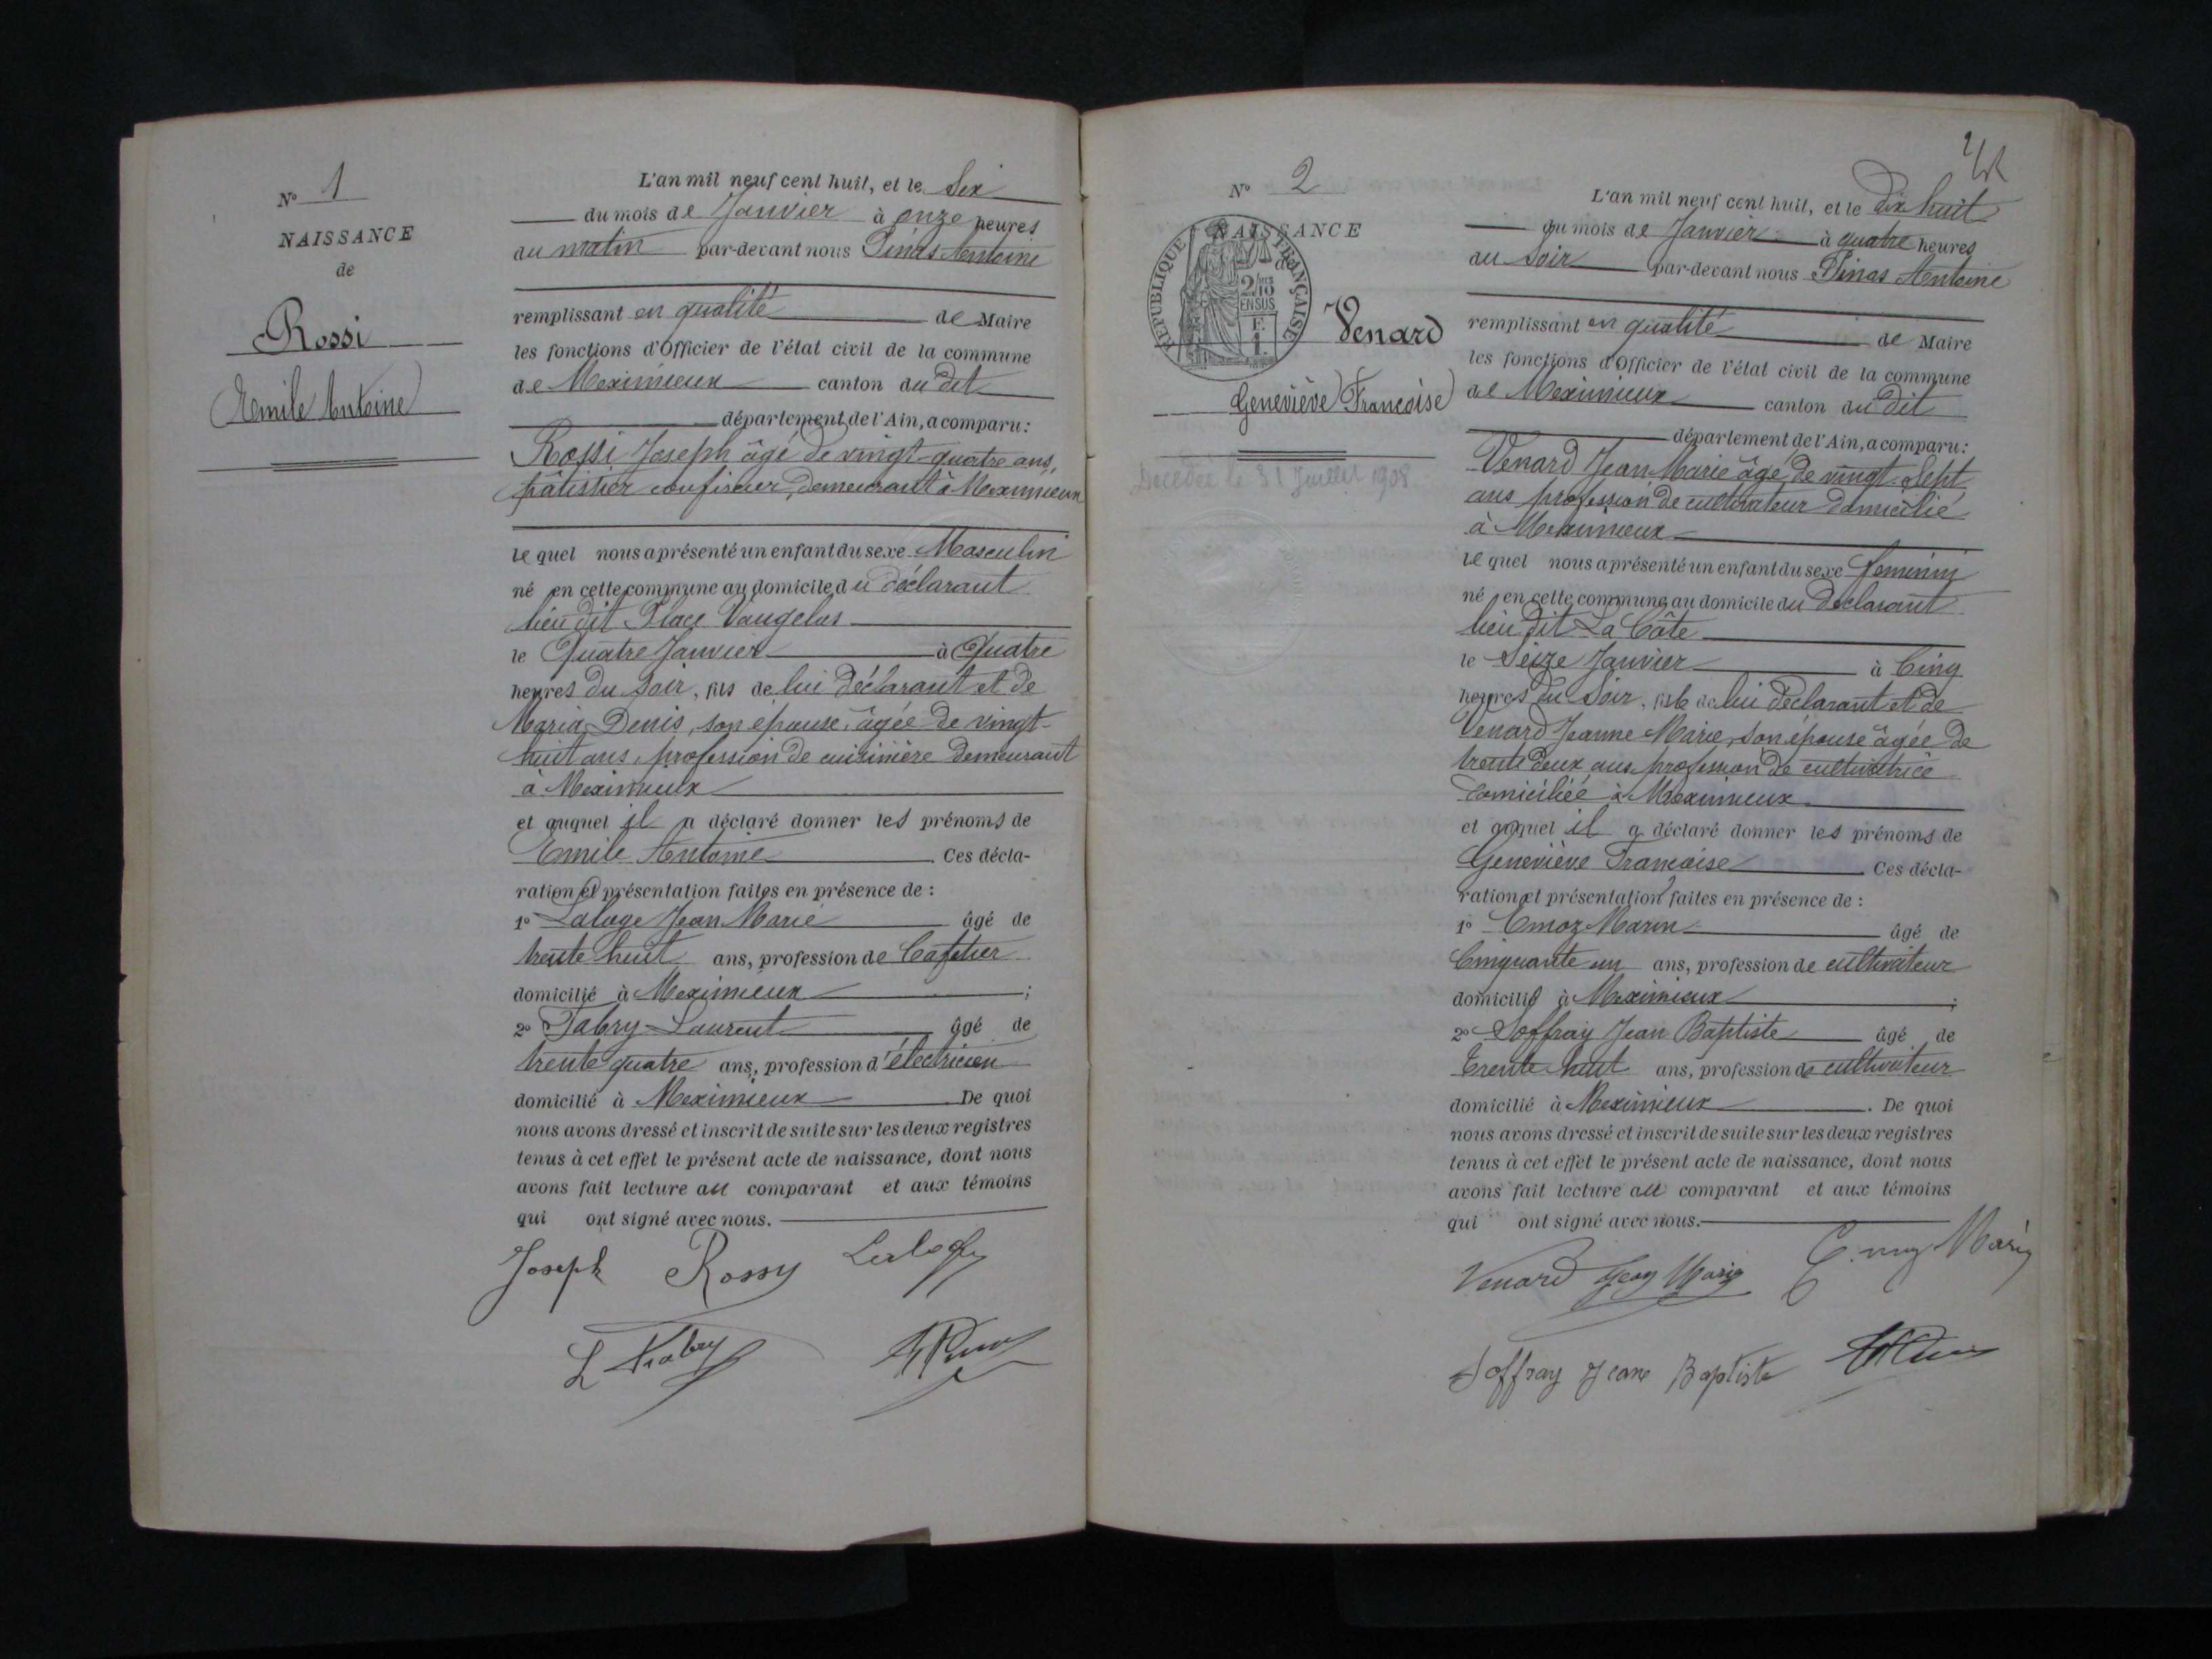 N° 1
NAISSANCE
de
Rossi
Emile Antoine
L'an mil neuf cent huit, et le Six
du mois de Janvier à onze heures
du matin par-devant nous Pinas Antoine
remplissant en qualité de Maire
les fonctions d'Officier de l'état civil de la commune
de Meximieux canton du dit
département de l'Ain, a comparu :
Rossi Joseph âgé de vingt-quatre ans,
pâtissier confiseur, demeurant à Meximieux
lequel nous a présenté un enfant du sexe Masculin
né en cette commune au domicile du déclarant
lieu dit Place Vaugelas
le Quatre Janvier à Quatre
heures du soir, fils de lui déclarant et de
Maria Denis, son épouse, âgée de vingt-
huit ans, profession de cuisinière demeurant
à Meximieux
et auquel il a déclaré donner les prénoms de
Emile Antoine. Ces décla-
ration et présentation faites en présence de :
1° Laloge Jean Marie âgé de
trente huit ans, profession de Cafetier
domicilié à Meximieux ;
2° Fabry Laurent, âgé de
trente quatre ans, profession d'électricien
domicilié à Meximieux. De quoi
nous avons dressé et inscrit de suite sur les deux registres
tenus à cet effet le présent acte de naissance, dont nous
avons fait lecture au comparant et aux témoins
qui ont signé avec nous.
Joseph Rossy Laloge
L Fabry
N° 2
NAISSANCE
de
REPUBLIQUE FRANÇAISE
2/10
EN SUS
Venard
Geneviève Françoise
Décédée le 31 Juillet 1908
L'an mil neuf cent huit, et le dix huit
du mois de Janvier à quatre heures
du soir par-devant nous Pinas Antoine
remplissant en qualité de Maire
les fonctions d'Officier de l'état civil de la commune
de Meximieux canton du dit
département de l'Ain, a comparu :
Venard Jean Marie âgé de vingt-Sept
ans profession de cultivateur domicilié
à Meximieux
lequel nous a présenté un enfant du sexe féminin
né en cette commune au domicile du déclarant
lieu dit La Côte
le Seize Janvier à Cinq
heures du Soir, fille de lui déclarant et de
Venard Jeanne Marie, son épouse âgée de
trente deux ans profession de cultivatrice
domiciliée à Meximieux
et auquel il a déclaré donner les prénoms de
Geneviève Françoise. Ces décla-
ration et présentation faites en présence de :
1° Cmoz Marin âgé de
Cinquante un ans, profession de cultivateur
domicilié à Meximieux ;
2° Soffray Jean Baptiste âgé de
Trente huit ans, profession de cultivateur
domicilié à Meximieux. De quoi
nous avons dressé et inscrit de suite sur les deux registres
tenus à cet effet le présent acte de naissance, dont nous
avons fait lecture au comparant et aux témoins
qui ont signé avec nous.
Venard Jean Marie
Soffray Jean Baptiste